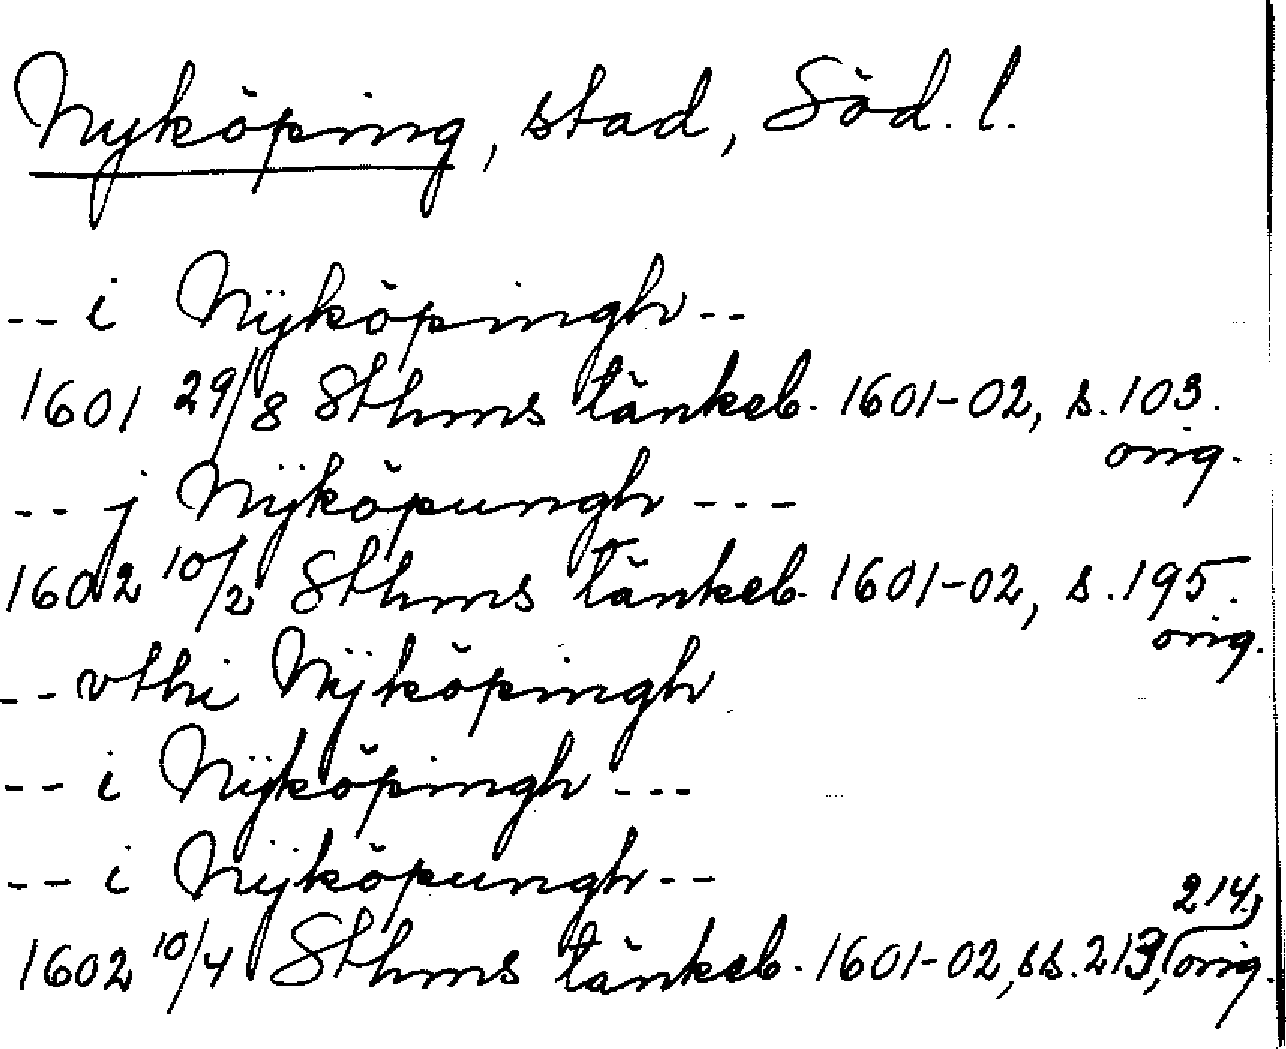 Nyköping, stad, Söd. l.
-- i Nÿköpingh --
1601 29/8 Sthms tänkeb. 1601-02, s. 103.
orig.
-- j Nÿköpungh ---
1602 10/2 Sthms tänkeb. 1601-02, s. 195.
orig.
-- vthi Nÿköpingh
-- i Nÿköpingh ---
-- i Nÿköpungh --
214,
1602 10/4 Sthms tänkeb. 1601-02, ss. 213, orig.